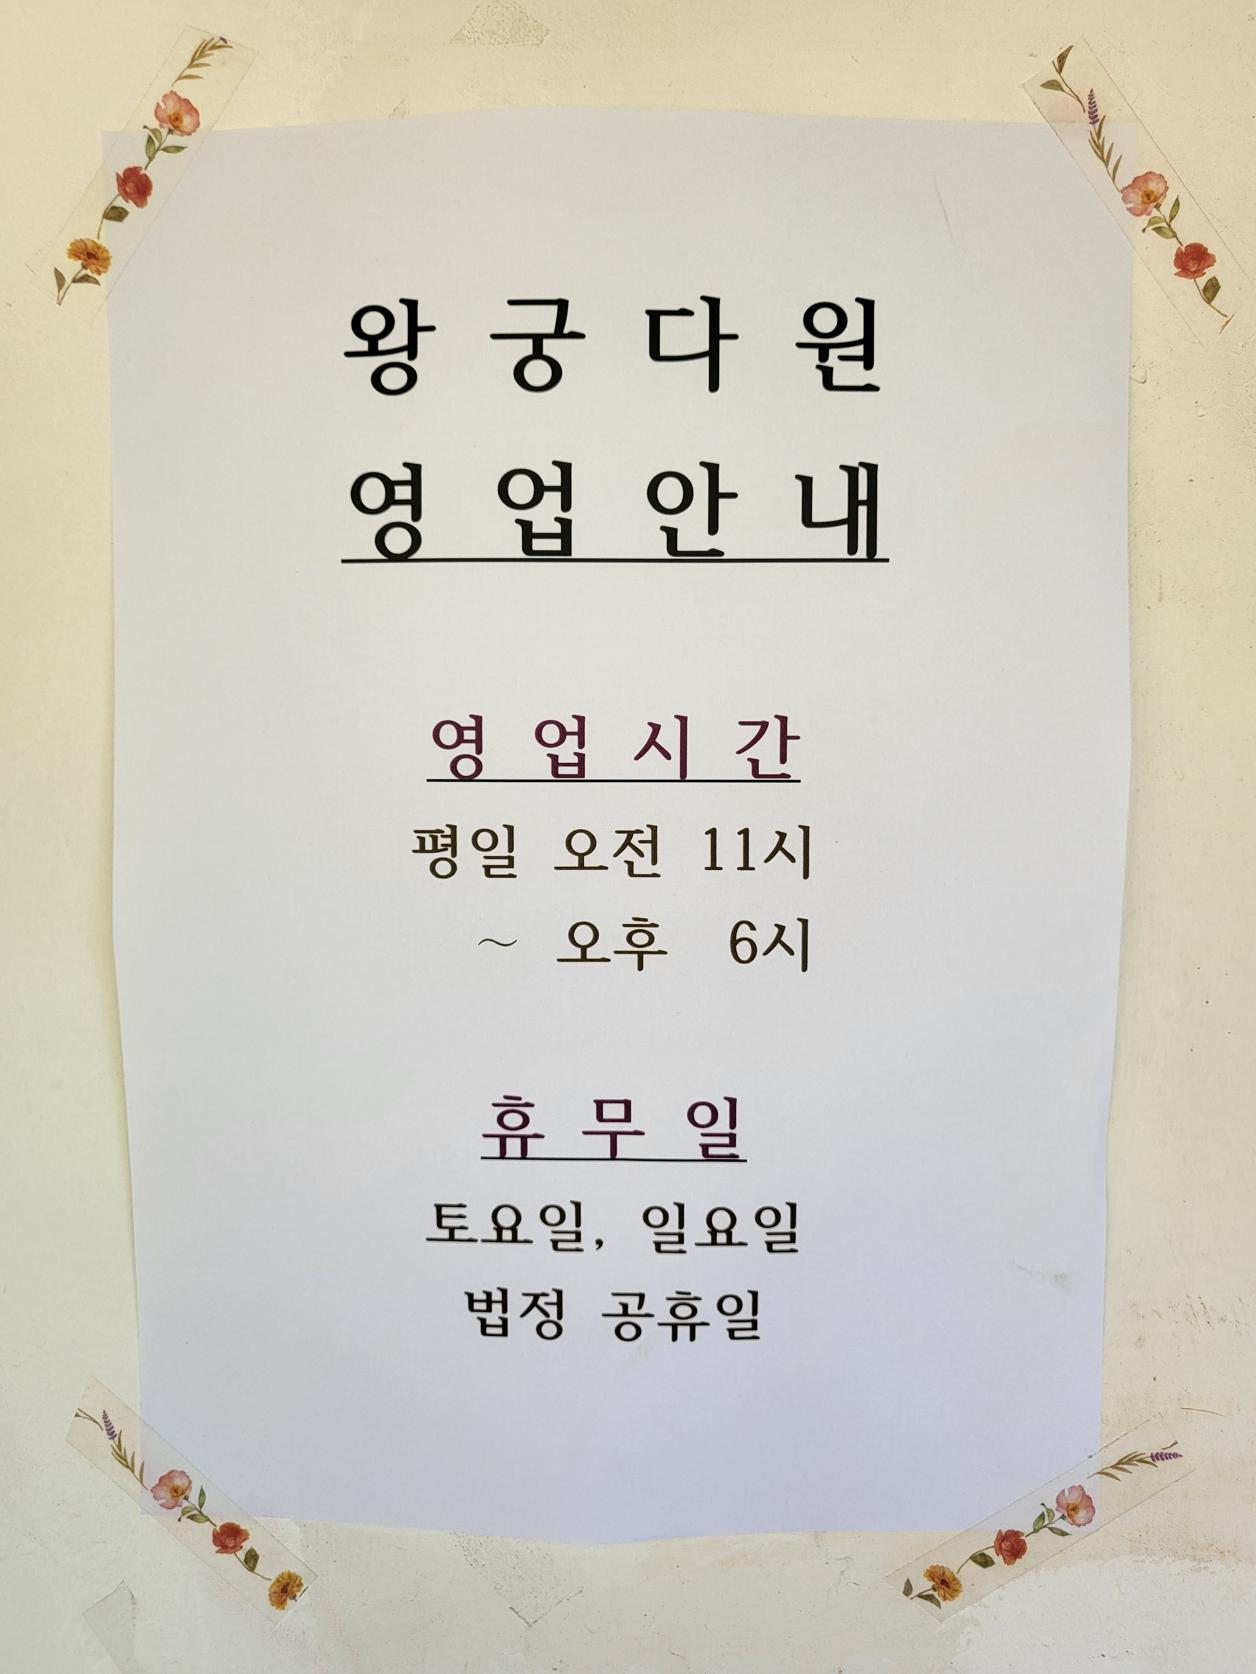 왕 궁 다 원
영 업 안 내
영 업 시 간
평일 오전 11시
~ 오후 6시
휴 무 일
토요일, 일요일
법정 공휴일